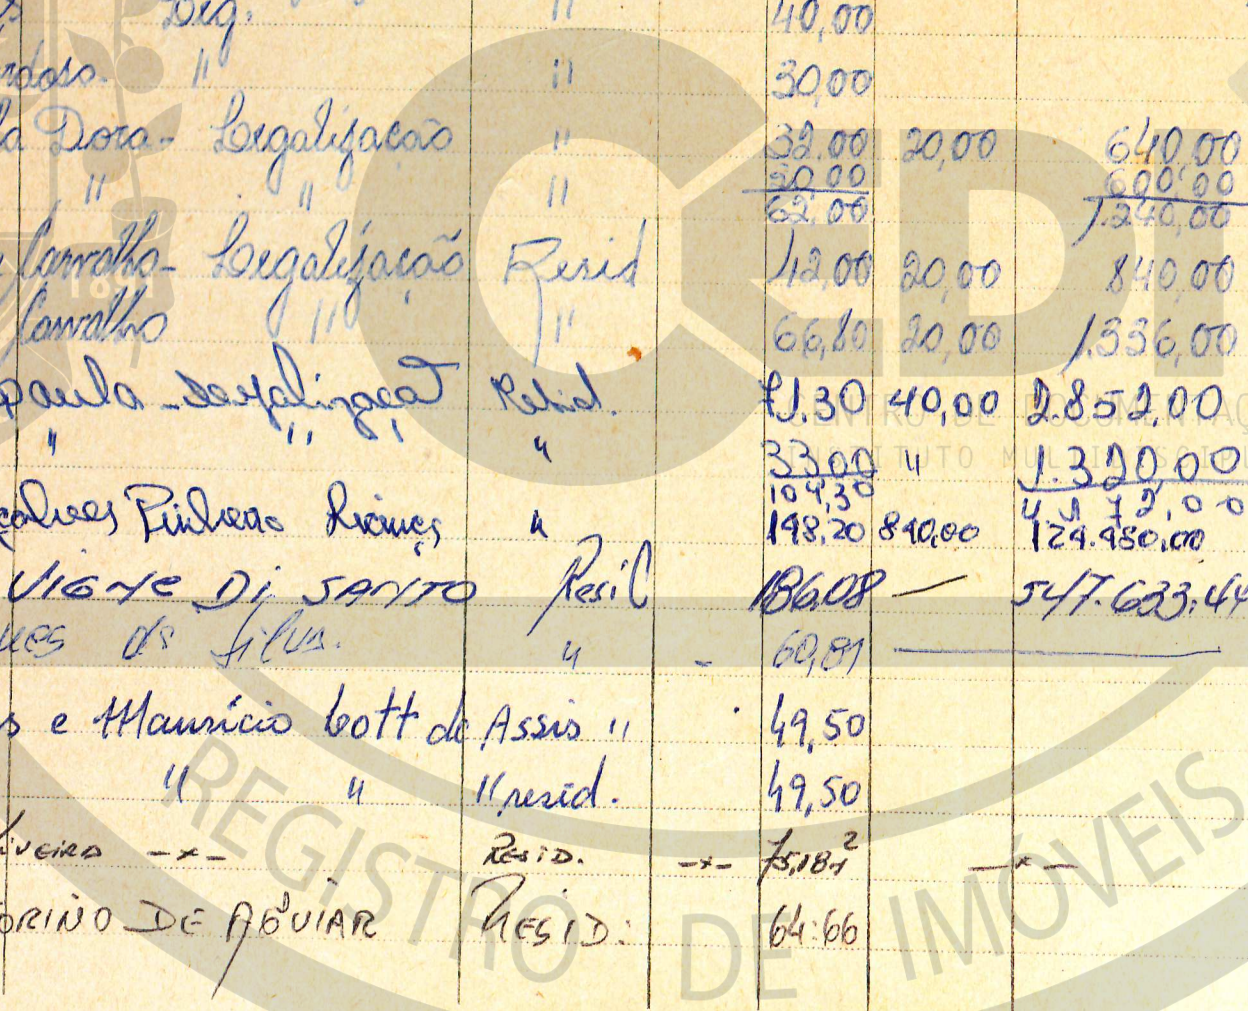 Leg. " 40,00
rdoso- " " 30,00
la Dora- Legalização " 32.00 20,00 640,00
" " " 30 00 600,00
62,00 1.240,00
Carvalho- Legalização Resid 42,00 20,00 840,00
Carvalho " " 66,80 20,00 1.336,00
paula - Resid. 71.30 40,00 2.852,00
" " " 33 00 " 1.320,00
104,30 4.172,00
Pinheiro " 148,20 840,00
Vigne Di SANTO Resid 186,08 — 547.633,44
ues da Silva. " - 60,81 —
s e Mauricio Lott de Assis " 49,50
" " " resid. 49,50
liveira -x- Resid. -x- 75,181² -x-
ORINO DE AGUIAR RESID: 64:66
1891
CEDI
CENTRO DE DOCUMENTAÇ
INSTITUTO MULTIDISCIPL
REGISTRO DE IMÓVEIS